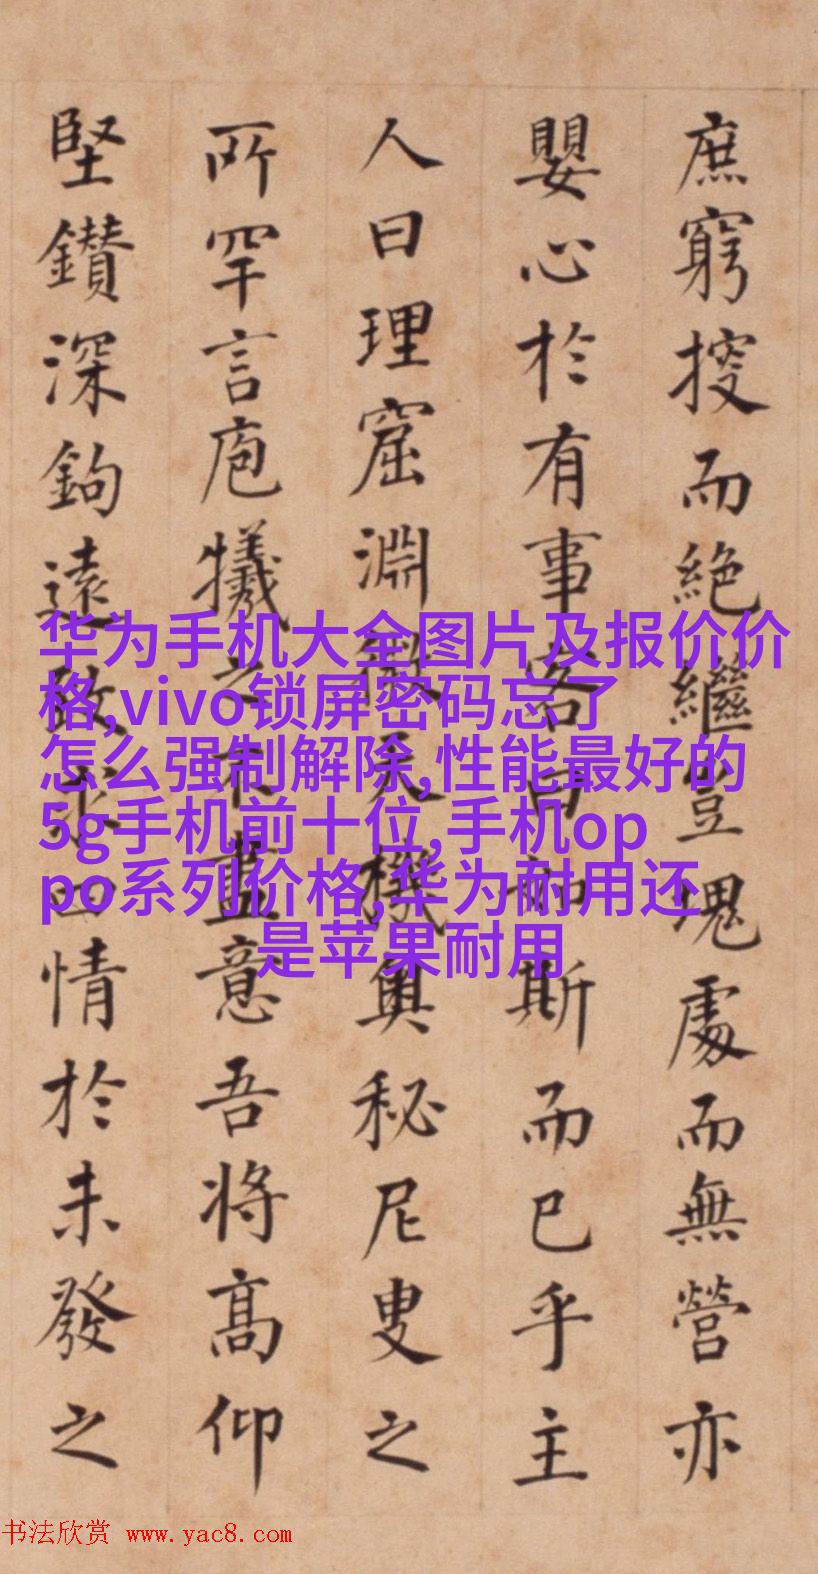 庶窮搜而絕繼豈塊處而無營亦
嬰心於有事客曰如斯而已乎主
人曰理窟淵微天機奧秘尼叟之
所罕言庖犧之不盡意吾將高仰
堅鑽深鉤遠致求情於未發之
华为手机大全图片及报价价
格,vivo锁屏密码忘了
怎么强制解除,性能最好的
5g手机前十位,手机op
po系列价格,华为耐用还
是苹果耐用
书法欣赏 www.yac8.com